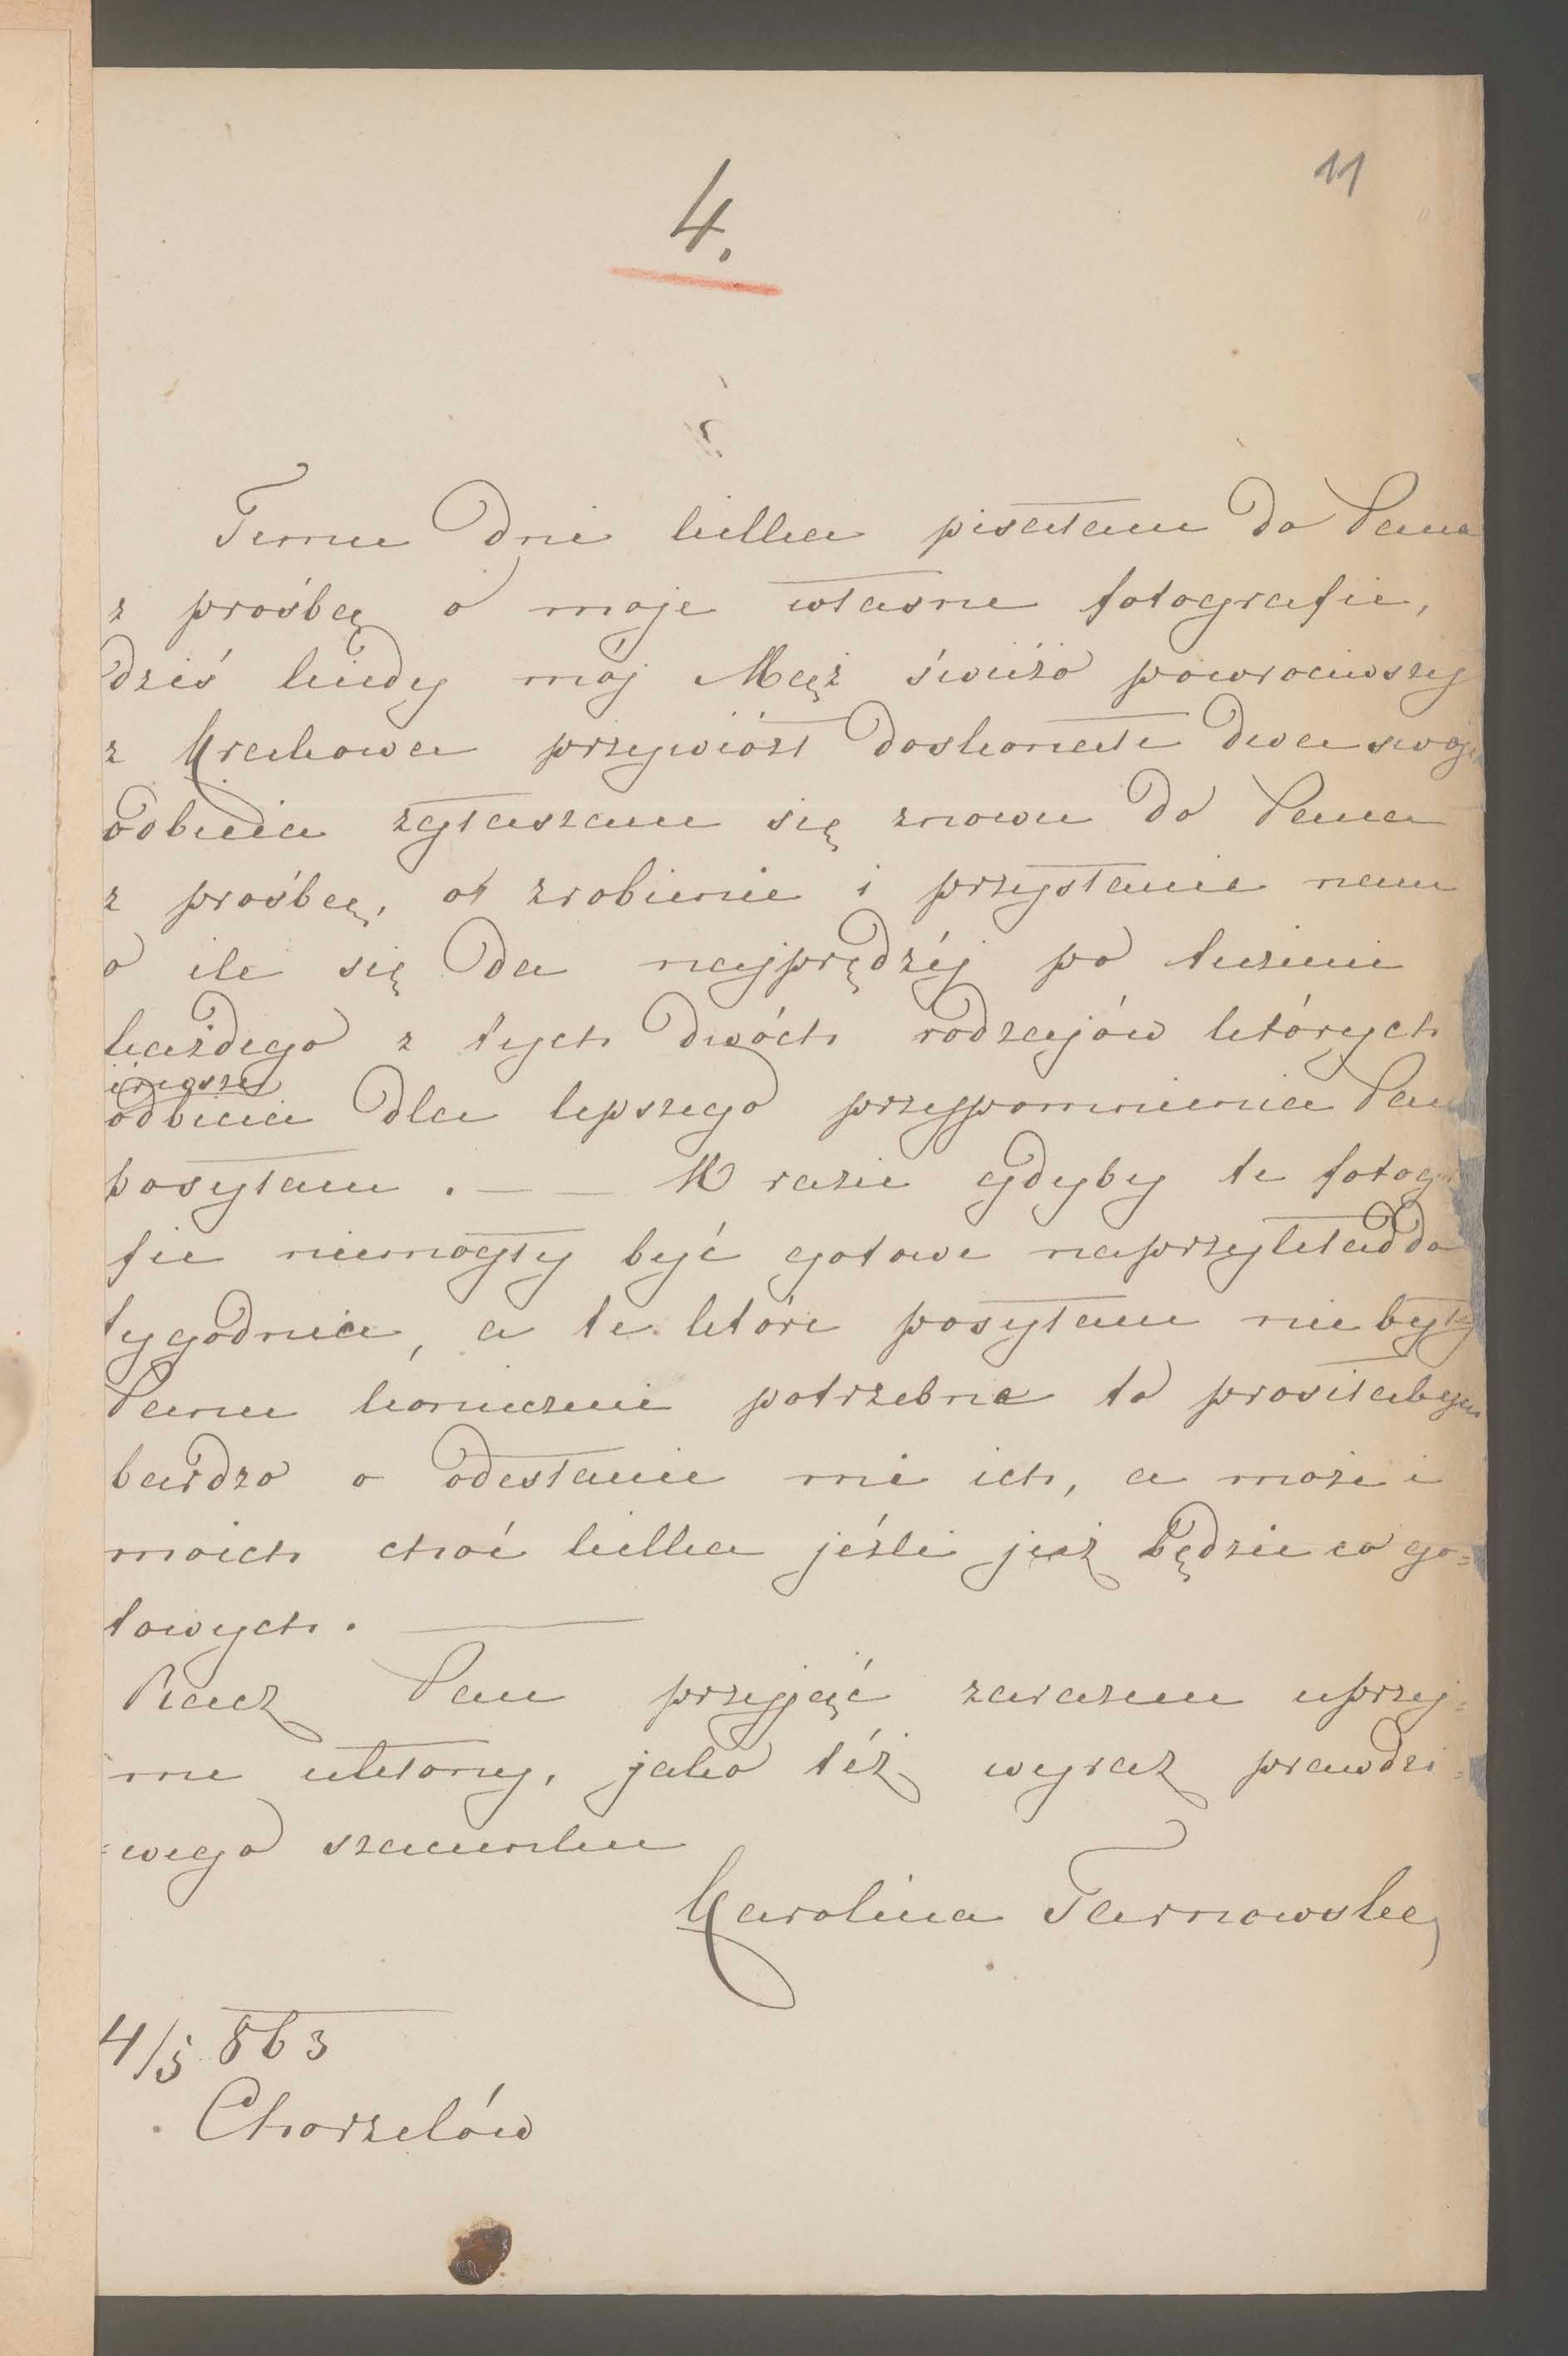 11
4.
Temu dni kilka pisałam do Pana
z prośbą o moje własne fotografie,
dziś kiedy mój Mąż świéżo powrociwszy
z Krakowa przywiózł doskonałe dwa swoje
odbicia zgłaszam się znowu do Pana
z prośbą, o zrobienie i przysłanie nam
o ile się da najprędzéj po tuzinie
każdego z tych dwóch rodzajów których
odbicia dla lepszego przypomnienia Panu
posyłam . — — W razie gdyby te fotogra
fie niemogły być gotowe naprzykład do
tygodnia, a te które posyłam nie były
Panu koniecznie potrzebne to prosiłabym
bardzo o odesłanie mi ich, a może i
moich choć kilka jeśli już będzie co go=
towych. —
Racz Pan przyjąć zarazem uprzej=
me ukłony, jako téż wyraz prawdzi=
=wego szacunku
Karolina Tarnowska
4/5 863
Chorzelów